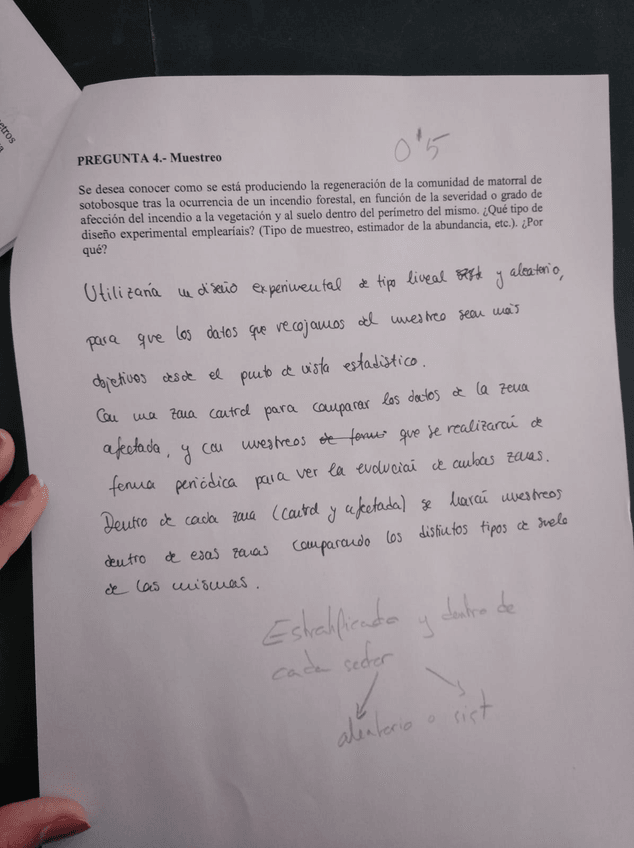 PREGUNTA 4.- Muestreo
0'5
Se desea conocer como se está produciendo la regeneración de la comunidad de matorral de
sotobosque tras la ocurrencia de un incendio forestal, en función de la severidad o grado de
afección del incendio a la vegetación y al suelo dentro del perímetro del mismo. ¿Qué tipo de
diseño experimental emplearíais? (Tipo de muestreo, estimador de la abundancia, etc.). ¿Por
qué?
Utilizaría un diseño experimental de tipo lineal y aleatorio,
para que los datos que recojamos del muestreo sean más
objetivos desde el punto de vista estadístico.
Con una zona control para comparar los datos de la zona
afectada, y con muestreos de forma que se realizarán de
forma periódica para ver la evolución de ambas zonas.
Dentro de cada zona (control y afectada) se harán muestreos
dentro de esas zonas comparando los distintos tipos de suelo
de las mismas.
Estratificado y dentro de
cada sector
aleatorio o sist